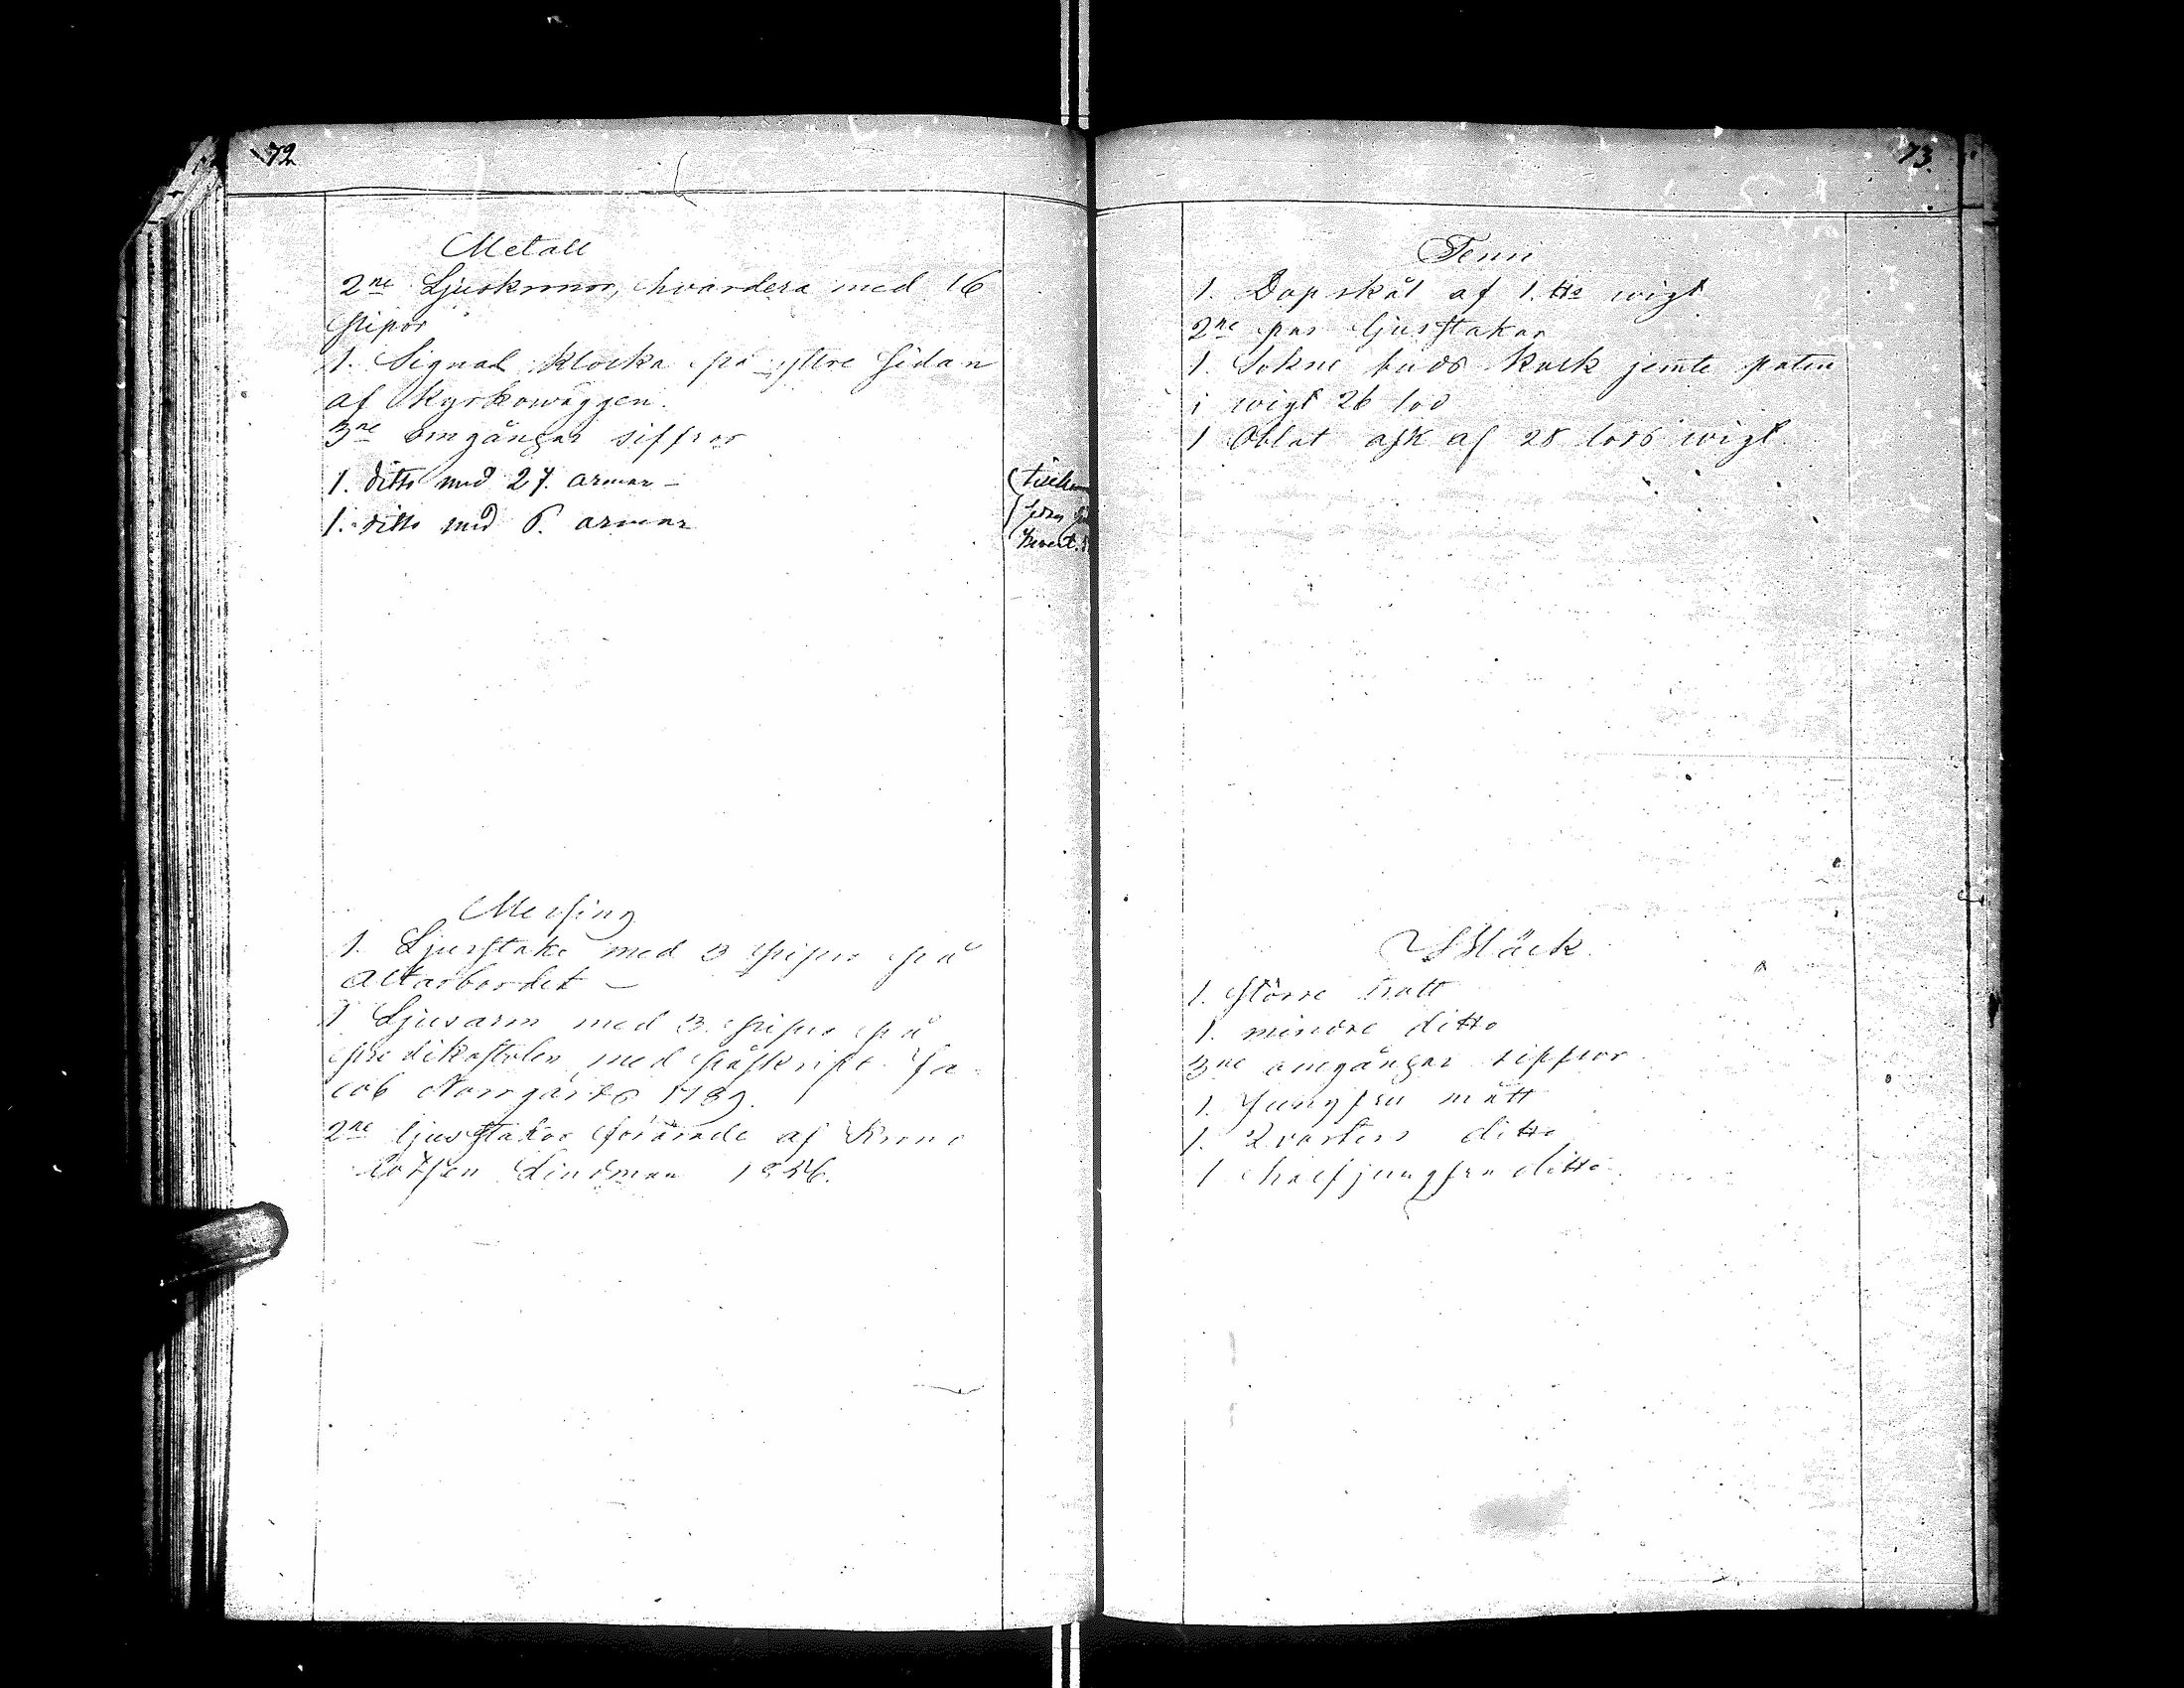 72
Metall
2ne Ljuskronor, hvardera med 16
pipor
1. Signal klocka på yttre sidan
af kyrkowäggen.
3ne omgångar siffror
1. ditto med 27. armar –
1. ditto med 6. armar
Messing
1. Ljusstake med 3 pipor på
altarbordet –
1 Ljusarm med 3. pipor på
predikostolen med påskrift Ja-
cob Norrgårds 1789.
2ne ljusstakar förärade af Krono
Lotsen Lindman 1856.
73.
Tenn
1. Dopskål af 1. wigt
2ne par ljusstakar
1. Sokne buds kalk jemte paten
i wigt 26 lod
1 Oblat ask af 28 lods wigt.
Bläck
1. större tratt
1. mindre ditto
3ne omgångar siffror
1. Jungfru mått
1. Qvarters ditto
1 half jungfru ditto